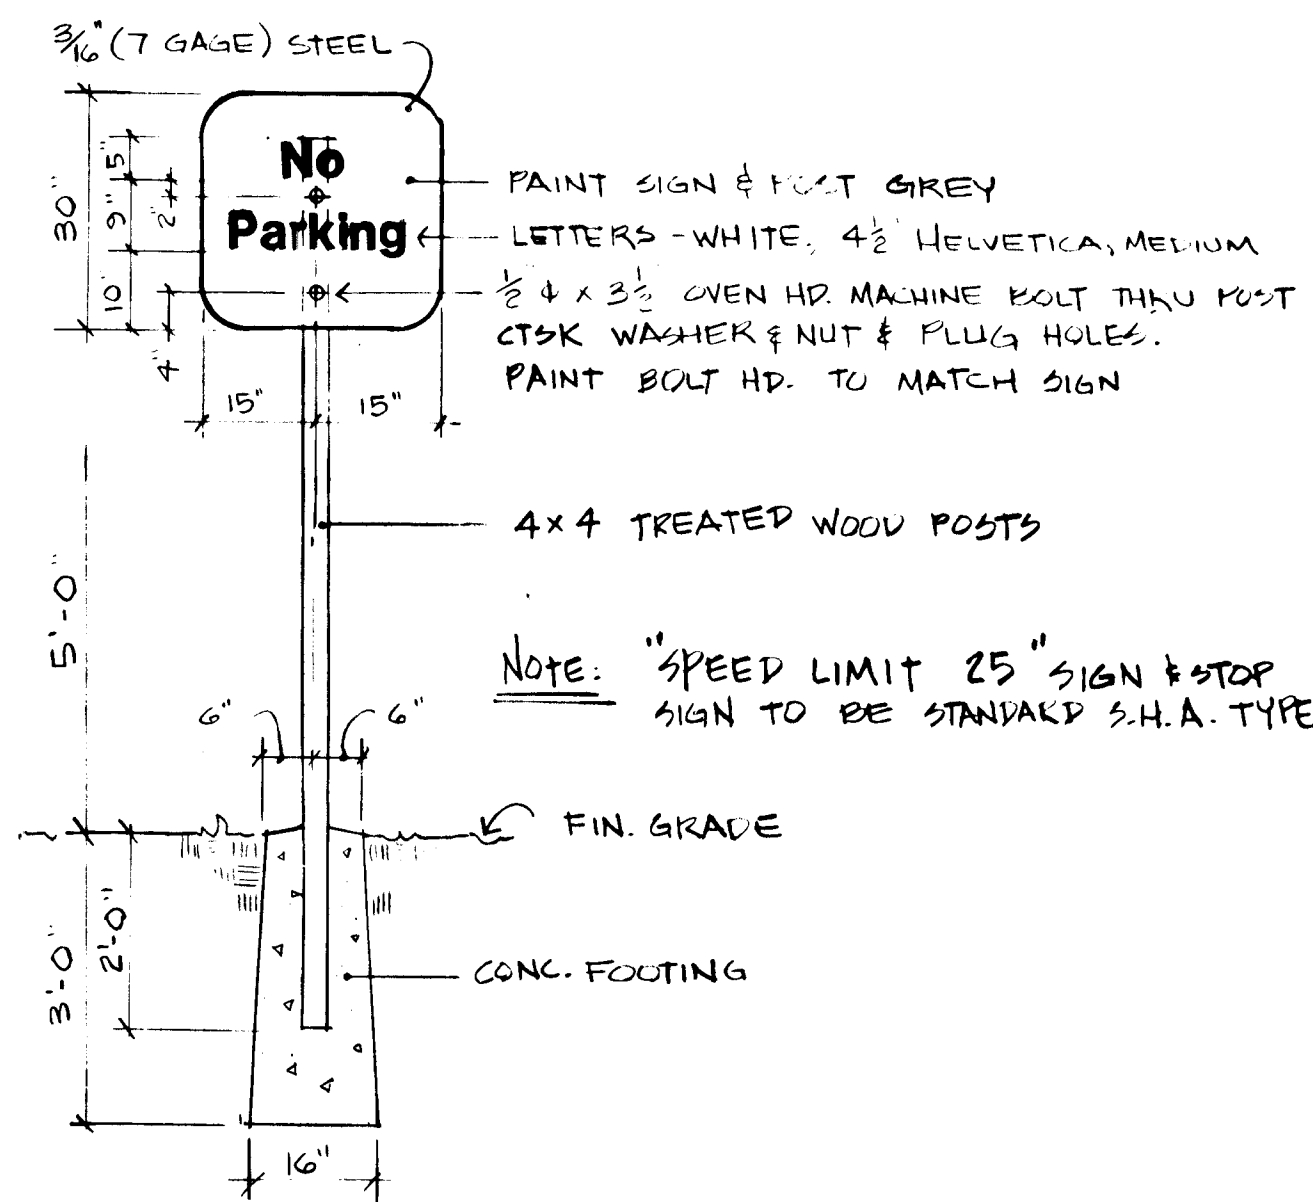 3/16" (7 GAGE) STEEL
No
Parking
30"
5"
9"
2"
10"
4"
15" 15"
PAINT SIGN & POST GREY
LETTERS - WHITE, 4½" HELVETICA, MEDIUM
½ ɸ x 3½ OVEN HD. MACHINE BOLT THRU POST
CTSK WASHER & NUT & PLUG HOLES.
PAINT BOLT HD. TO MATCH SIGN
4x4 TREATED WOOD POSTS
5'-0"
NOTE: "SPEED LIMIT 25" SIGN & STOP
SIGN TO BE STANDARD S.H.A. TYPE
6" 6"
FIN. GRADE
3'-0"
2'-0"
CONC. FOOTING
16"